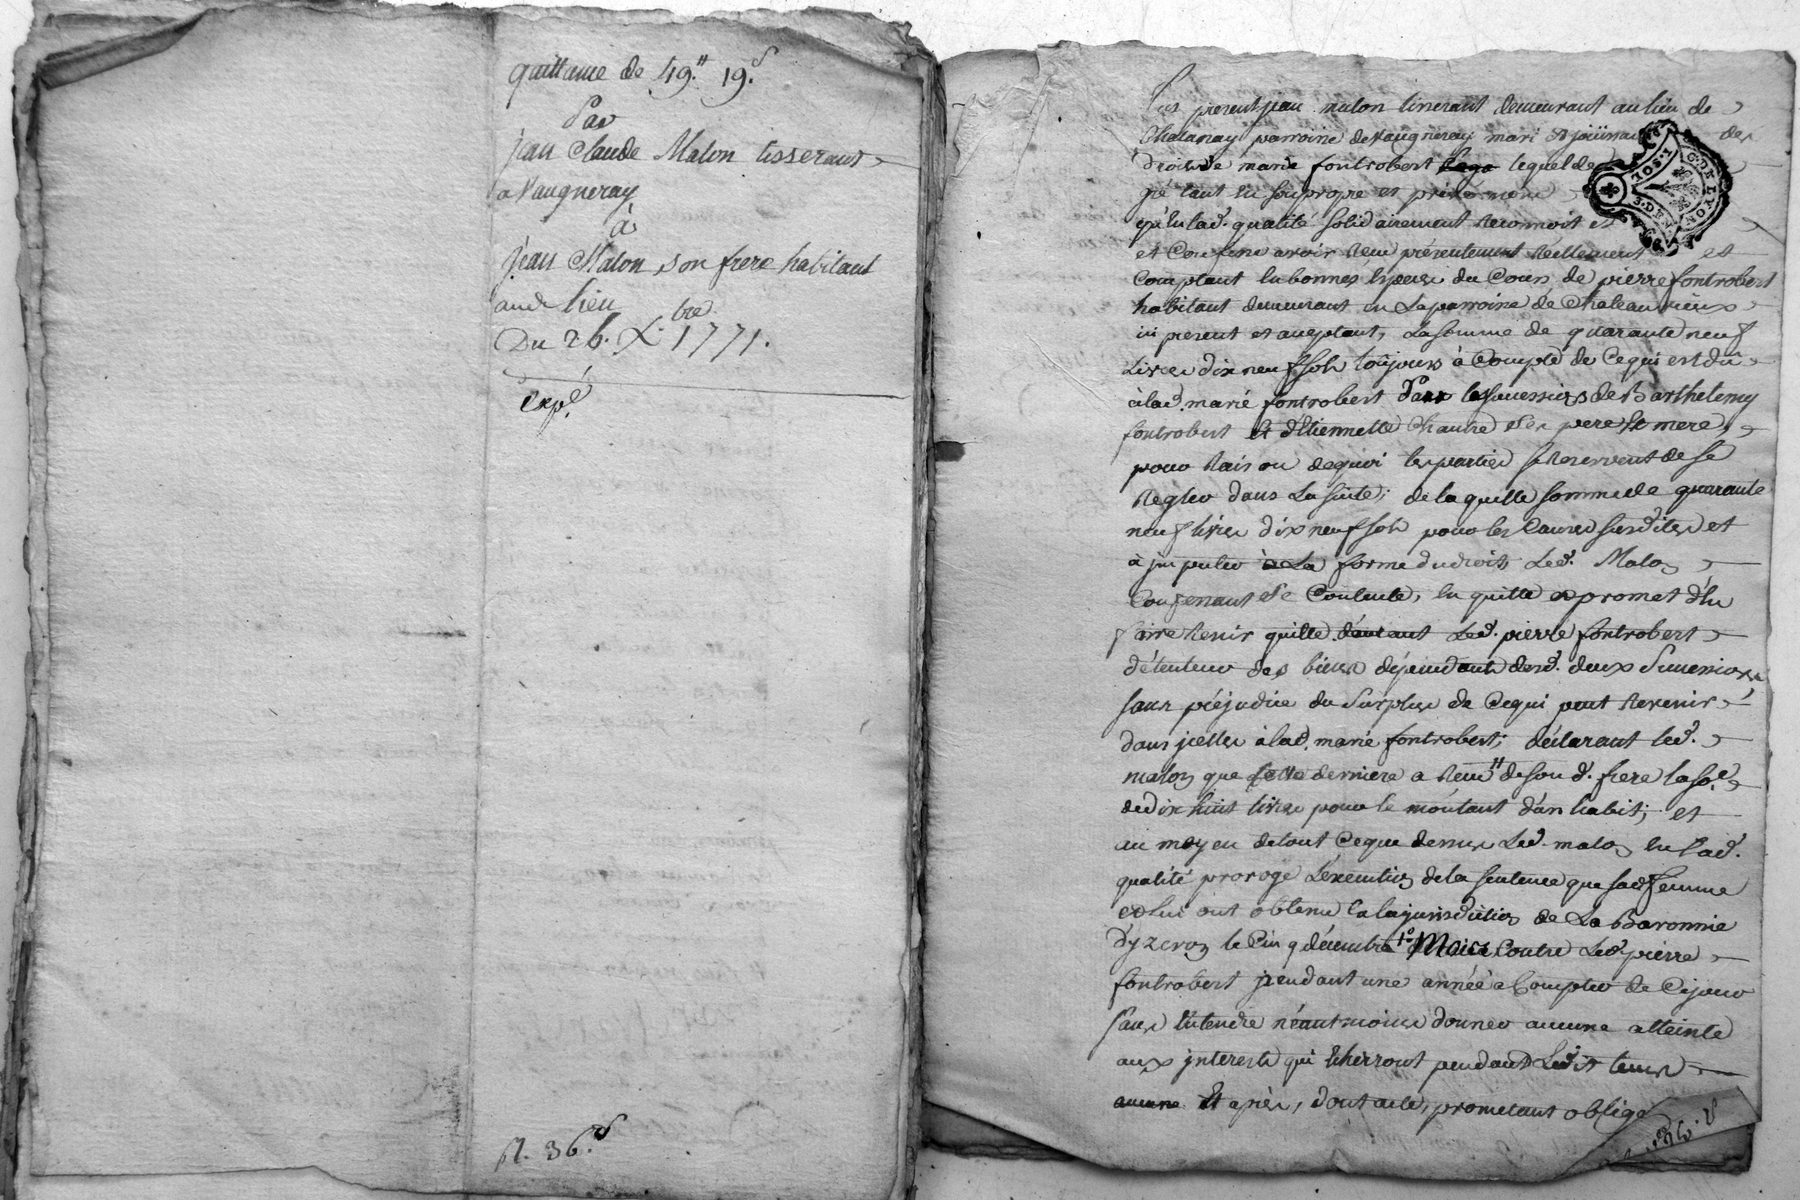 quittance de 49.# 19.s
Par
jean Claude Malon tisserant
a Vaugneray
à
jean Malon son frere habitant
aud. lieu
Du 26. X.bre 1771.
Expé
Fut present jean malon tinerant demeurant au lieu de
Chatanay parroine de Vaugneray mari et joüissant des
droits de marie fontrobert lequel de
gré tant en son propre et privé nom
qu'en lad. qualité solidairement reconnoit et
et confene avoir reçu présentement réellement et
comptant en bonnes espece du cours de pierre fontrobert
habitant demeurant en la parroine de Chateauvieux
ici present et aceptant, la somme de quarante neuf
livres dix neuf sols toûjours à compte de ce qui est dû
à lad. marie fontrobert Par les successions de Barthelemy
fontrobert et d'Etiennette Chautre ses pere et mere,
pour raison de quoi les parties se reservent de se
regler dans la suite; de laquelle somme de quarante
neuf livres dix neuf sols pour les causes susdites et
à imputer à la forme du droit, led. Malon
confenant se contente, en quitte et promet d'en
faire tenir quitte led. pierre fontrobert
détenteur des biens dépendants desd. deux successions
sans préjudice du surplus de ce qui peut revenir
dans icelles à lad. marie fontrobert; déclarant led.
malon que cette derniere a reçu de son d. frere la so.e
de dix huit livres pour le montant d'un habit; et
au moyen de tout ce que dessus led. malon en lad.
qualité proroge l'execution de la sentence que sad. femme
et lui ont obtenu en la jurisdiction de la Baronnie
d'yzeron le Cinq décembre contre led. pierre
fontrobert pendant une année à compter de ce jour
sans entendre néantmoins donner aucune atteinte
aux interets qui echerront pendant ledit tems
et après, dont acte, promettant oblige
G. DE LYON
I. SOL
3. DEN